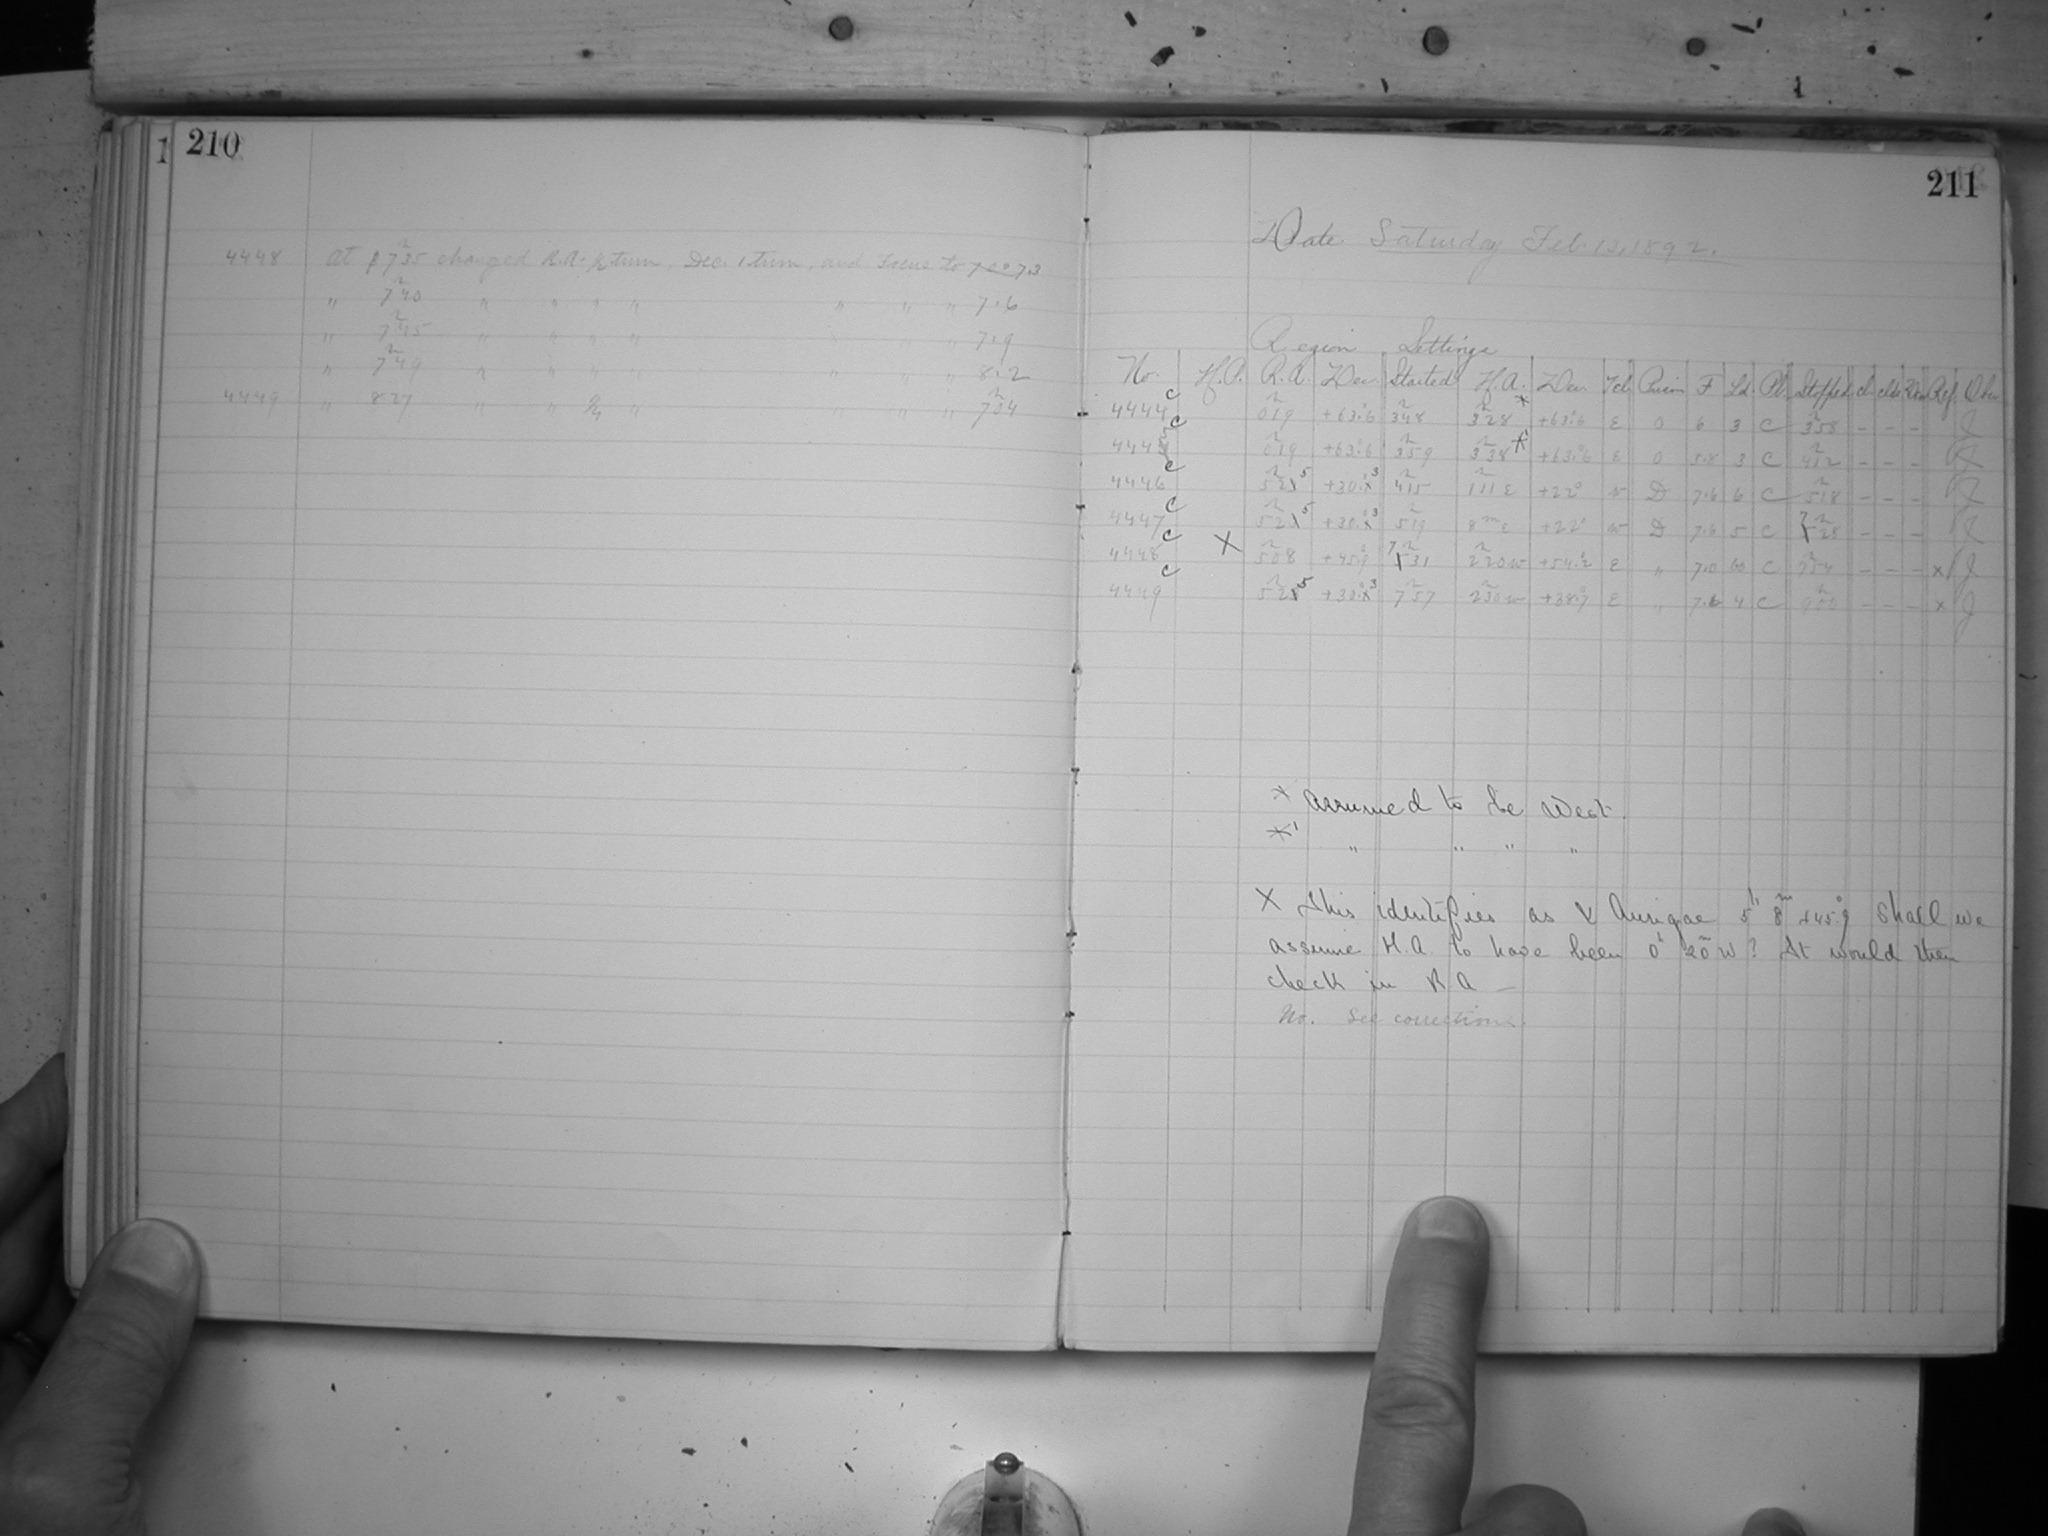 1 210
4448 At 7 35 changed R.A. ½ turn, Dec. 1 turn, and Focus to 7.3
" 7 40 " " " " " " " 7.6
" 7 45 " " " " " " " 7.9
" 7 49 " " " " " " " 8.2
4449 " 8 27 " " " " " "
211
Date. Saturday Feb. 13, 1892.
Region Settings
No. R.A. Dec. Started H.A. Dec. Tel Prism F Sd. Pl. Stopped cl. Ref. Obs
4444 c 0 19 +63.6 3 48 3 28 * +63.6 E 0 6 3 C 3 58 - - - J
4445 c 0 19 +63.6 3 59 3 38 *' +63.6 E 0 5.8 3 C 4 12 - - -
4446 c +30. 4 15 1 11 E +22° w D 7.6 6 C 5 18 - - -
4447 c +30. 5 19 8m E +22° w D 7.6 5 C - - -
4448 c X 5 08 +45.9 7 31 2 20 w +54.2 E " 7.0 60 C 7 54 - - - x J
4449 c +30. 7 57 2 30 w +38.9 E " 7.6 4 C - - - x J
* assumed to be West.
*' " " " "
X This identifies as Aurigae 5h 8m +45.°9 Shall we
assume H.A. to have been 0h 20m W? It would then
check in R A —
No. See corrections.